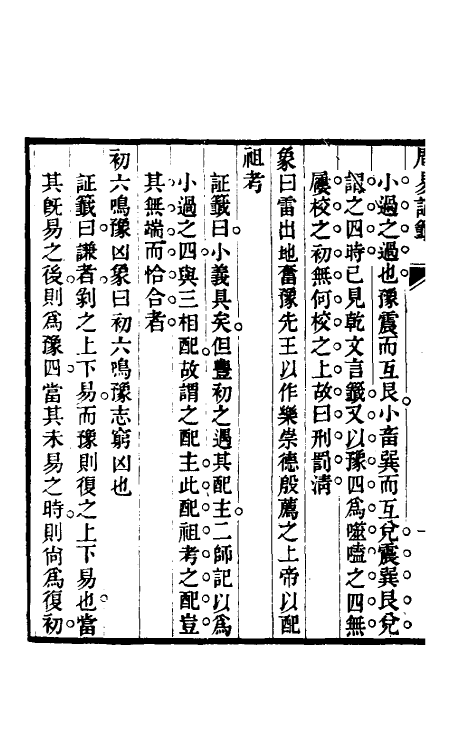 周易証籤
小過之過也豫震而互艮小畜巽而互兌震巽艮兌
謂之四時已見乾文言籤又以豫四爲噬嗑之四無
屨校之初無何校之上故曰刑罰清
象曰雷出地奮豫先王以作樂崇德殷薦之上帝以配
祖考
証籤曰小義具矣但豐初之遇其配主二師記以爲
小過之四與三相配故謂之配主此配祖考之配豈
其無端而恰合者
初六鳴豫凶象曰初六鳴豫志窮凶也
証籤曰謙者剝之上下易而豫則復之上下易也當
其旣易之後則爲豫四當其未易之時則尙爲復初